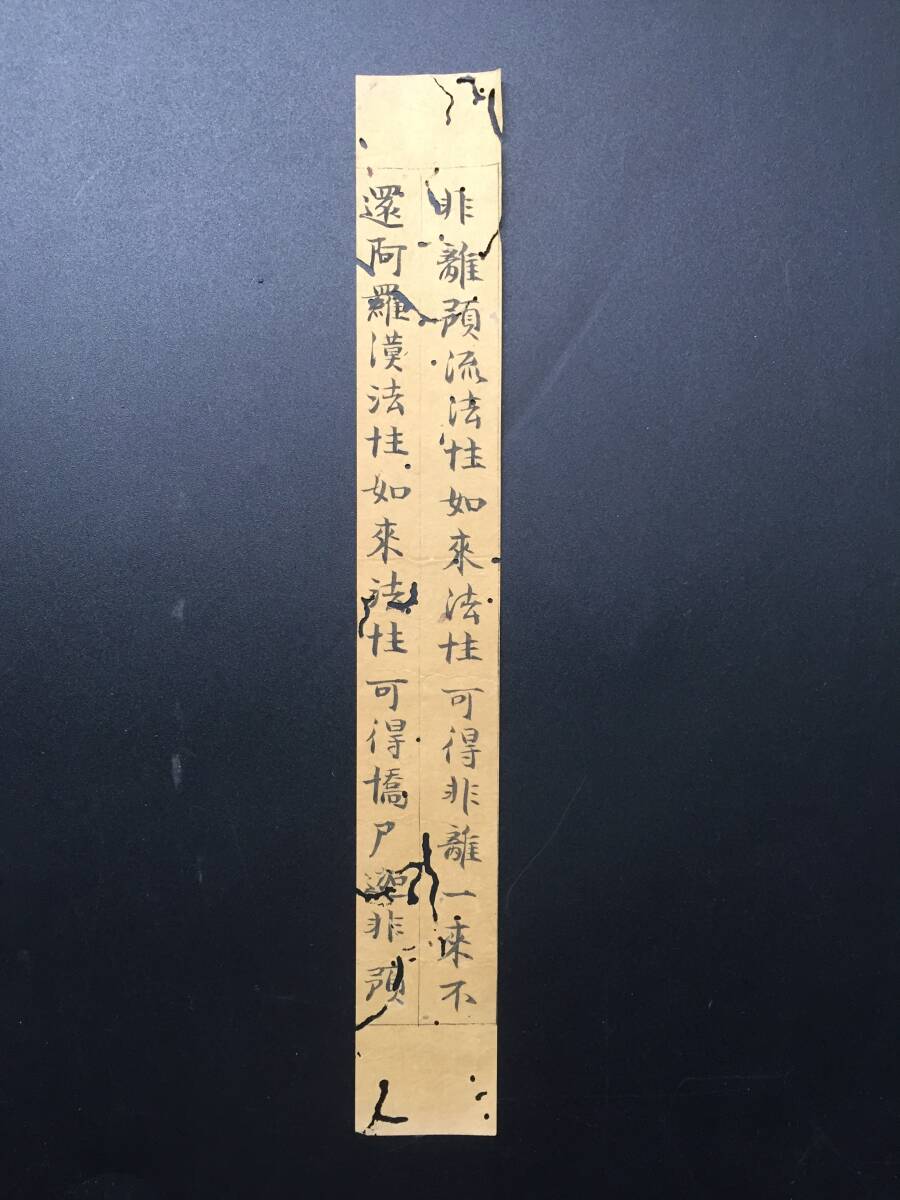 非離預流法性如來法性可得非離一來不
還阿羅漢法性如來法性可得憍尸迦非預